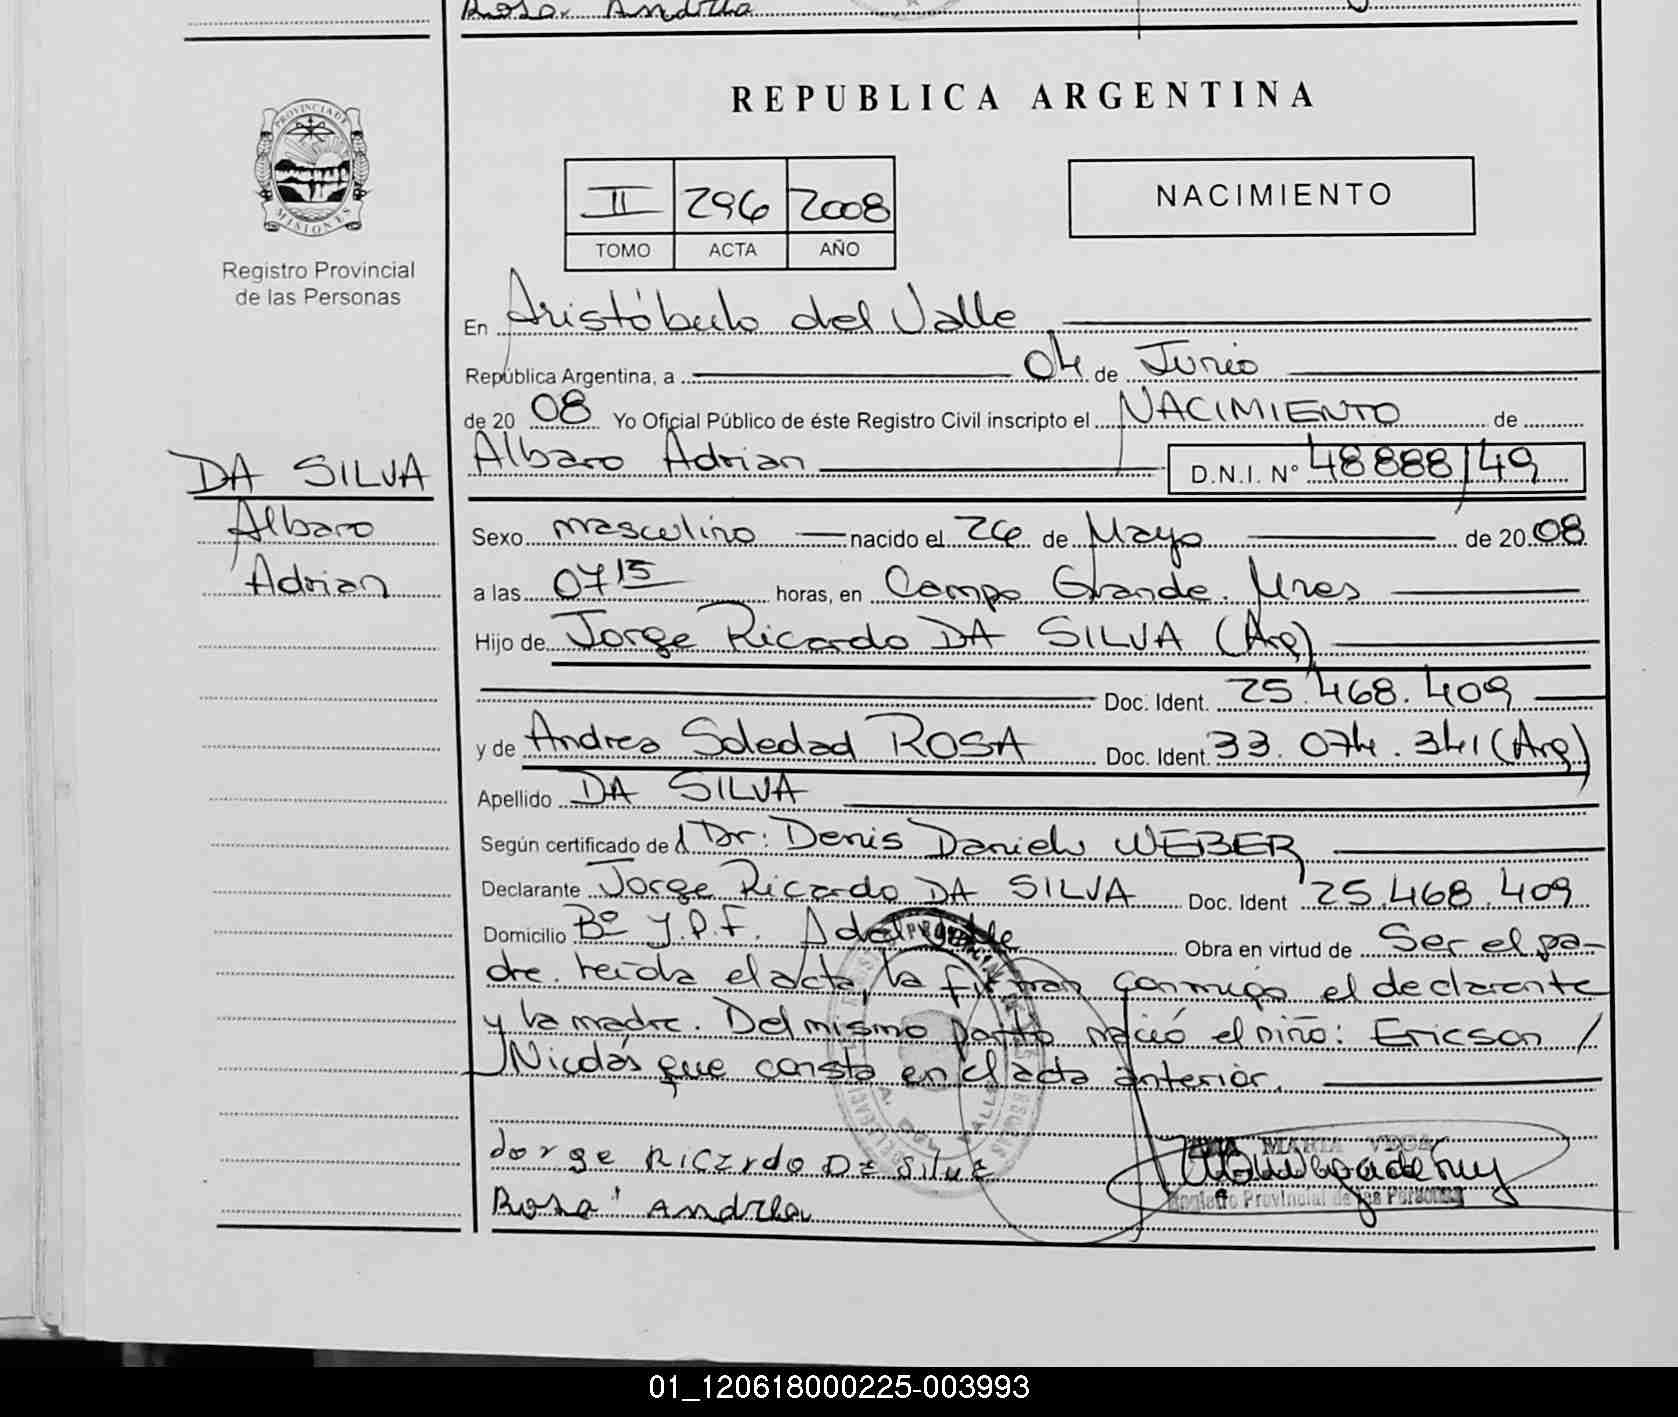 Rosa Andrea
REPUBLICA ARGENTINA
PROVINCIA DE
MISIONES
Registro Provincial
de las Personas
II 296 2008
TOMO ACTA AÑO
NACIMIENTO
En Aristóbulo del Valle
República Argentina, a 04 de Junio
de 20 08 Yo Oficial Público de éste Registro Civil inscripto el NACIMIENTO de
Albaro Adrian D.N.I. Nº 48888149
DA SILVA
Albaro
Adrian
Sexo masculino nacido el 26 de Mayo de 20 08
a las 07 15 horas, en Campo Grande. Mnes
Hijo de Jorge Ricardo DA SILVA (Arg)
Doc. Ident. 25.468.409
y de Andrea Soledad ROSA Doc. Ident. 33.074.341 (Arg)
Apellido DA SILVA
Según certificado de l Dr: Denis Daniel WEBER
Declarante Jorge Ricardo DA SILVA Doc. Ident 25.468.409
Domicilio Bº Y.P.F. A del Valle Obra en virtud de Ser el pa-
dre. leída el acta, la firman conmigo el declarante
y la madre. Del mismo parto nació el niño: Ericson /
Nicolás que consta en el acta anterior.
Jorge Ricardo Da Silva
Rosa Andrea
MARIA VEGA
Registro Provincial de las Personas
01_120618000225-003993